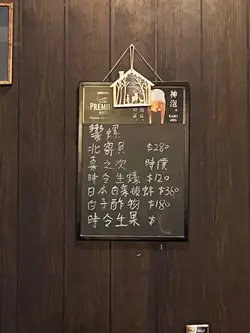 The
PREMIUM
神泡
響螺
北寄貝 $280
喜之次 時價
時令生蠔 $120
日本白菜梗蚌 $360
白子酢物 $180
時令生果 $